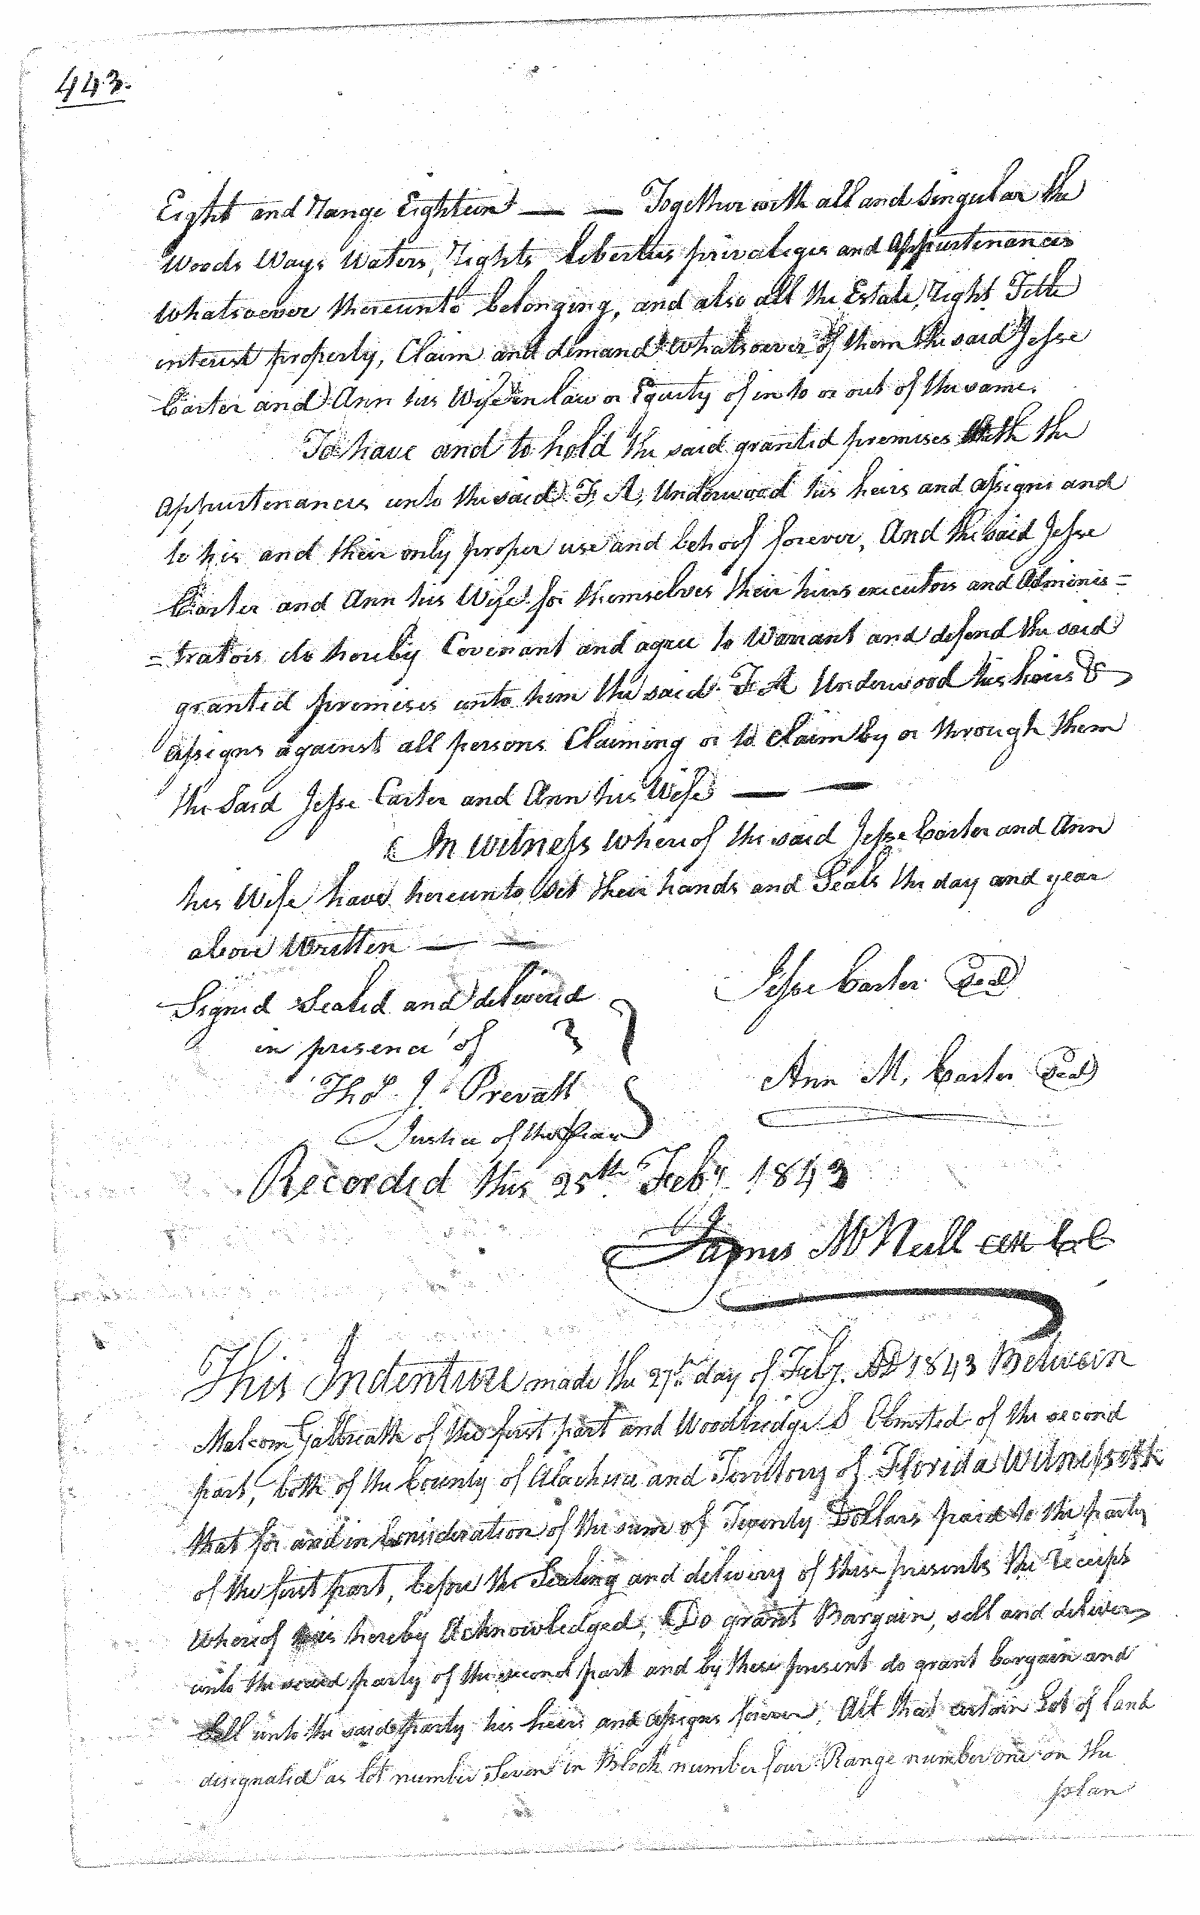 443.
Eight and Range Eighteen — — Together with all and singular the
Woods Ways Waters, Rights liberties privaliges and Appurtenances
Whatsoever thereunto belonging, and also all the Estate, Right Title
interest property, Claim and demand Whatsoever of them the said Jesse
Carter and Ann his Wife in law or Equity of in to or out of the same.
To have and to hold the said granted premises with the
appurtenances unto the said F. A. Underwood his heirs and assigns and
to his and their only proper use and behoof forever, And the said Jesse
Carter and Ann his Wife for themselves their heirs executors and Adminis=
=trators do hereby Covenant and agree to Warrant and defend the said
granted premises unto him the said F. A Underwood his heirs &
assigns against all persons Claiming or to claim by or through them
the Said Jesse Carter and Ann his Wife — —
In Witness Whereof the said Jesse Carter and Ann
his Wife have hereunto set their hands and Seals the day and year
above Written — —
Signed Sealed and delivered
in presence of
Jesse Carter Seal
Ann M. Carter Seal
Thos. J. Prevatt
Justice of the Peace
Recorded this 25th Feby. 1843
James McNeill C C
This Indenture made the 27th day of Feby. AD 1843 Between
Malcom Galbreath of the first part and Woodbridge S Olmsted of the second
part, both of the County of Alachua and Territory of Florida Witnesseth
that for and in Consideration of the sum of Twenty Dollars paid to the party
of the first part, before the Sealing and delivery of these presents the receipt
Whereof is hereby Acknowledged, Do grant Bargain, sell and deliver
unto the said party of the second part and by these present do grant bargain and
Sell unto the said party his heirs and assigns forever. All that certain Lot of land
designated as lot number Seven in Block number four Range number one on the
plan